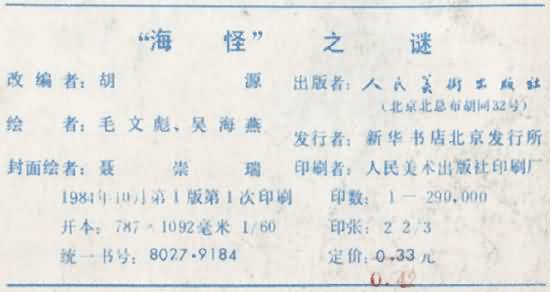 “海怪”之谜
改编者:胡源
绘者:毛文彪、吴海燕
封面绘者:聂崇瑞
1984年10月第1版第1次印刷
开本:787×1092毫米 1/60
统一书号:8027·9184
出版者:人民美術出版社
(北京北总布胡同32号)
发行者:新华书店北京发行所
印刷者:人民美术出版社印刷厂
印数:1—290,000
印张:2 2/3
定价:0.33元
0.42